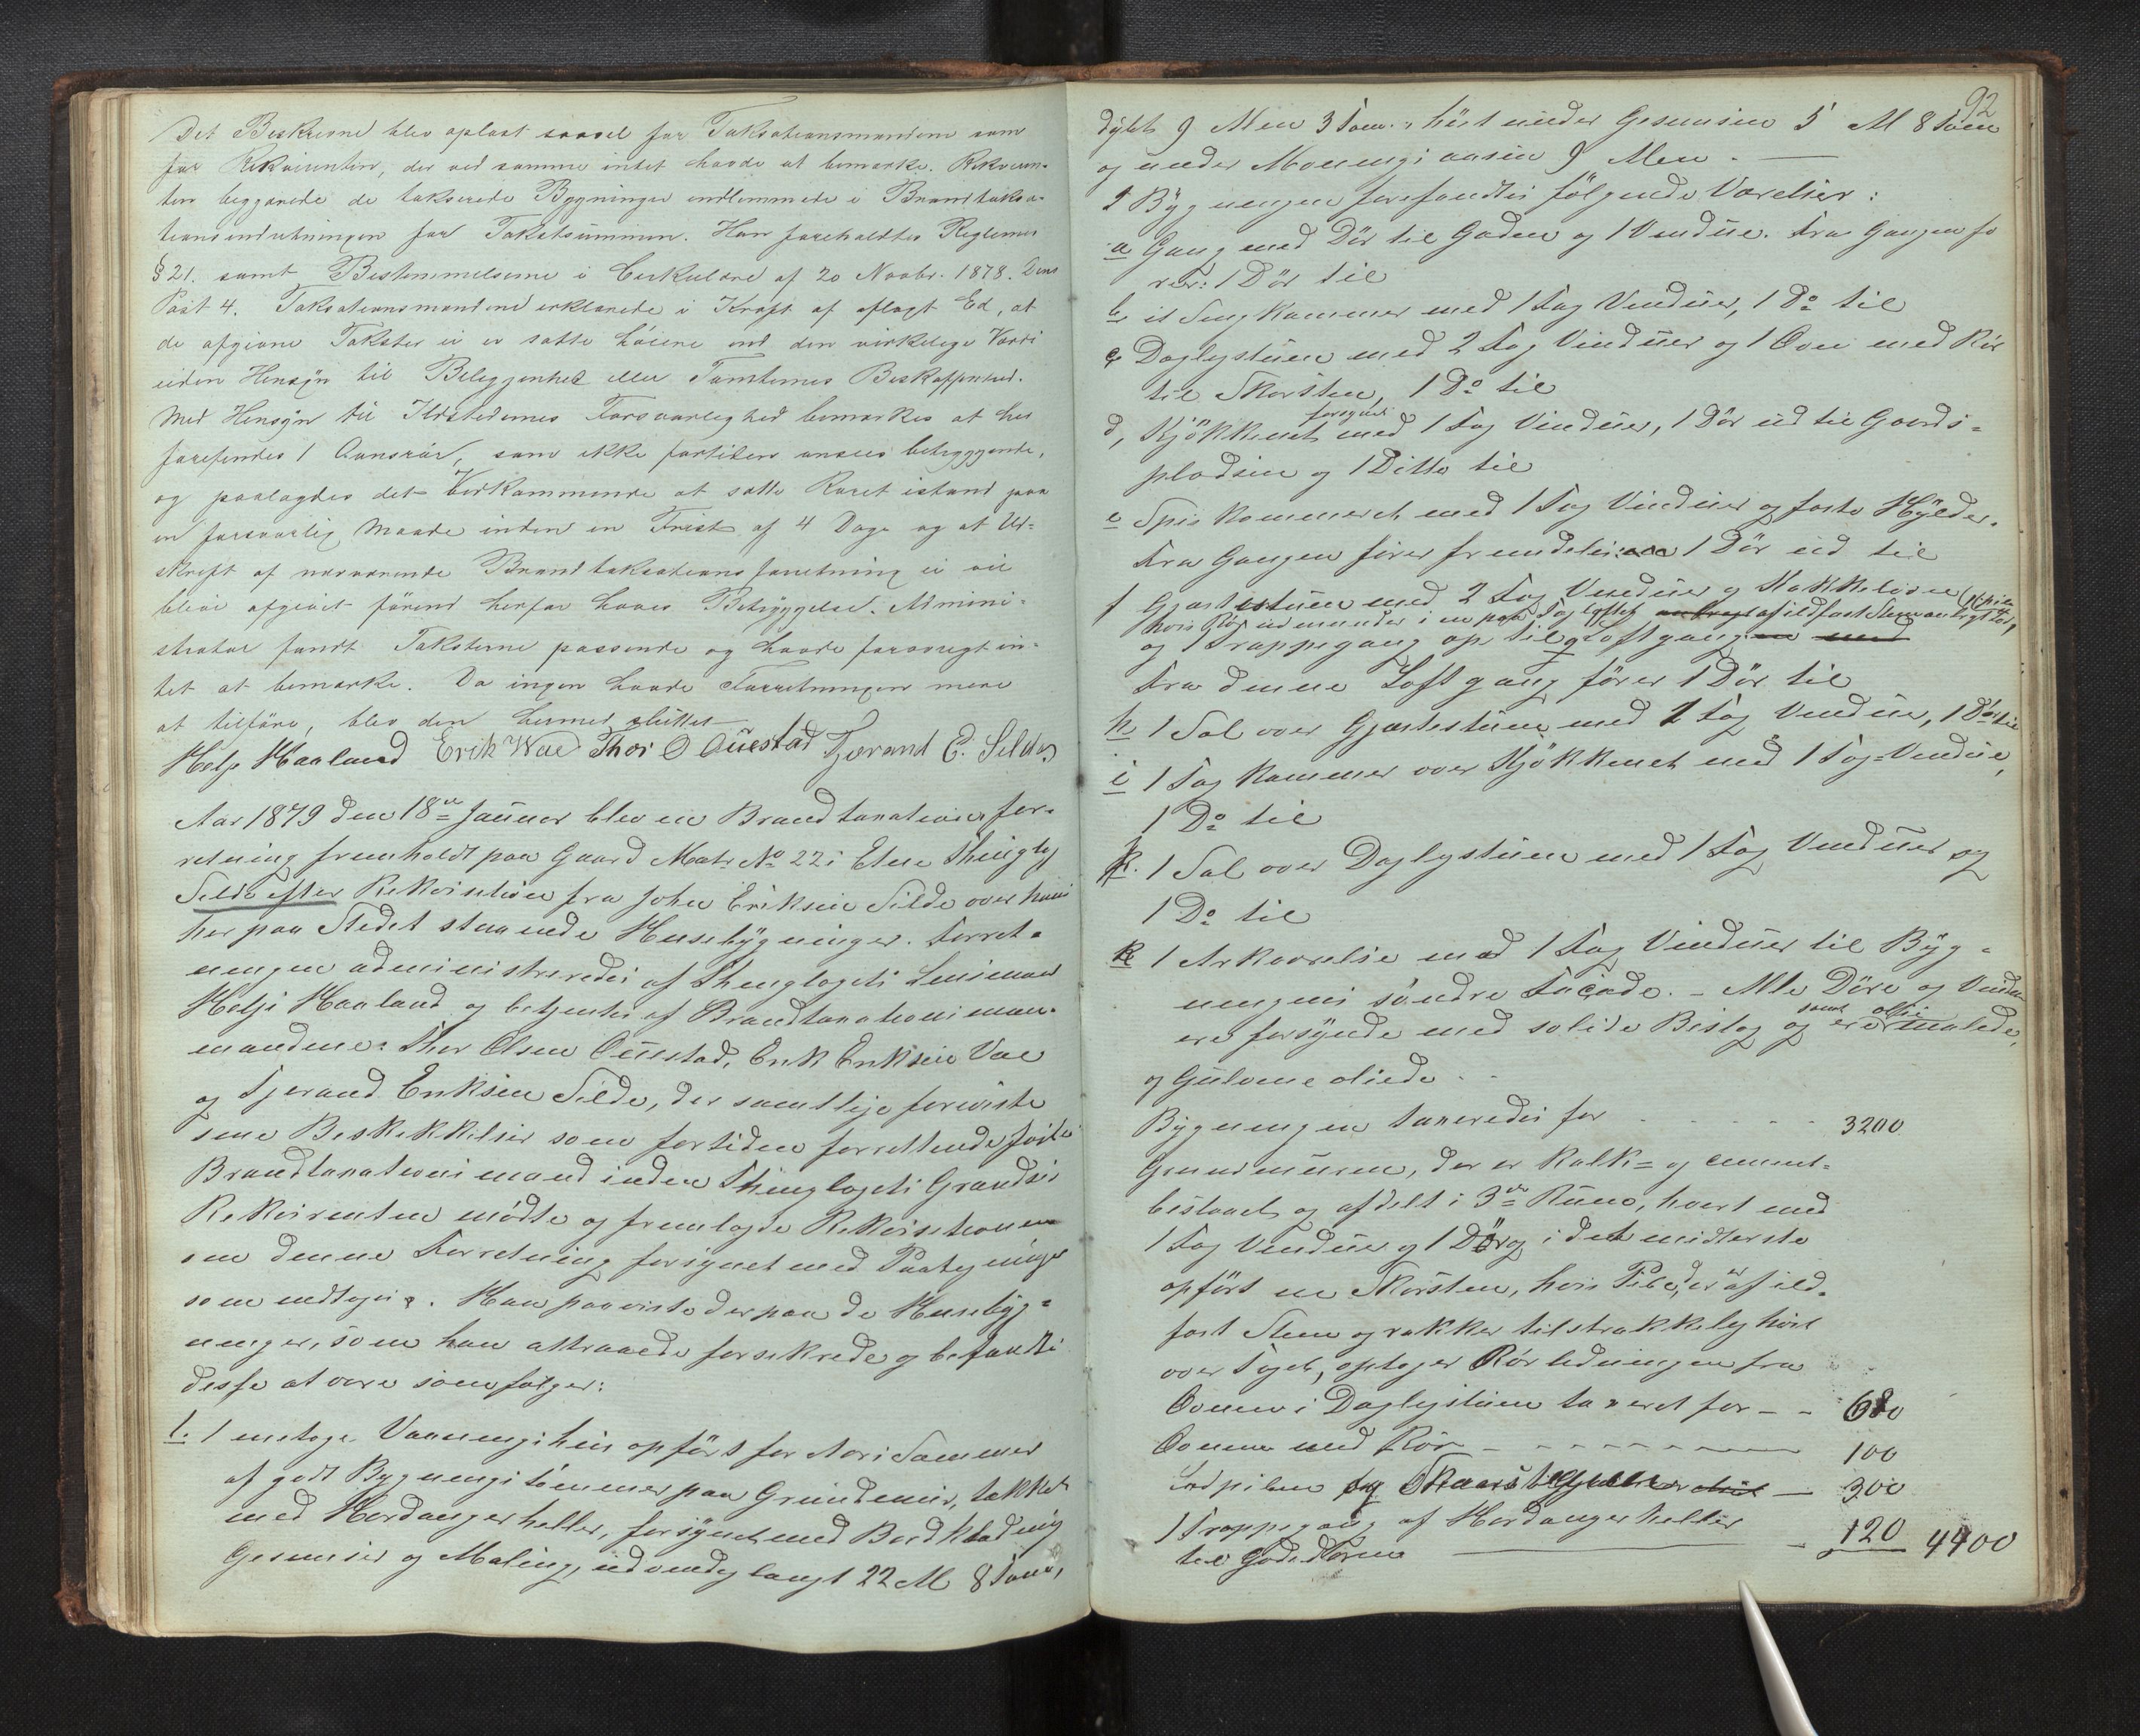 Det Beskrevne blev oplæst saavel for Taksationsmændene som
for Rekvirenten, der ved samme intet havde at bemærke. Rekviren-
ten begjærede de takserede Bygninger indlemmede i Brandtaksa-
tionsindretningen for Takstsummen. Han foreholdtes Reglemets
§ 21. samt Bestemmelserne i Cirkulære af 20 Novbr. 1878. Dens
Post 4. Taksationsmændene erklærede i Kraft af aflagt Ed, at
de afgivne Takster ei er satte høiere end den virkelige Værdi
uden Hensyn til Beliggenhed eller Tomternes Beskaffenhed.
Med Hensyn til Ildstedernes Forsvarlighed bemærkes at her
forefindes 1 Ovnsrør, som ikke fortiden ansees betryggende,
og paalagdes det Vedkommende at sætte Røret istand paa
en forsvarlig Maade inden en Frist af 4 Dage og at Ud-
skrift af nærværende Brandtaksationsforretning ei vil
blive afgivet førend herfor haves Betryggelse. Admini-
strator fandt Taksterne passende og havde forøvrigt in-
tet at bemærke. Da ingen havde Forretningen mere
at tilføre, blev den hermed sluttet
Helje Haaland Erik Wae Thor O Øuestad Tjerand E. Silde
Aar 1879 den 18de Januar blev en Brandtaxationsfor-
retning fremholdt paa Gaard Matr No 22 i Etne Thinglag
Silde efter Rekvisition fra John Eriksen Silde over hans
her paa Stedet staaende Husebygninger. Forret-
ningen administreredes af Thinglagets Lensmand
Helje Haaland og betjentes af Brandtaxationsmæn-
mændene: Thor Olsen Øuestad, Erik Eriksen Vae
og Tjerand Eriksen Silde, der samtlige foreviste
sine Beskikkelser som fortiden forrettende faste
Brandtaxationsmænd inden Thinglagets Grændser
Rekvirenten mødte og fremlagde Rekvisitionen
om denne Forretning forsynet med Paategninger
som indtages. Han paaviste derpaa de Husebyg-
ninger, som han attraaede forsikrede og befandtes
disse at være som følger:
1. 1 enetage Vaaningshus opført for Aar i Sommer
af godt Bygningstømmer paa Grundmur, tækket
med Hardangerheller, forsynet med Bordklædning
Gesimser og Maling, udvendig langt 22 Al 8 Tom,
92
dybt 9 Alen 3 Tom., høit under Gesimsen 5 Al 8 Tom
og under Mønningsaasen 9 Alen. —
I Bygningen forefandtes følgende Værelser:
a Gang med Dør til Gaden og 1 Vindue. Fra Gangen fø
rer: 1 Dør til
b, et Sengkammer med 1 Fag Vinduer, 1 Do til
c, Daglystuen med 2 Fag Vinduer og 1 Ovn med Rør
til Skorsten, 1 Do til
d, Kjøkkenet forsynet med 1 Fag Vinduer, 1 Dør ud til Gaards-
pladsen og 1 Ditto til
e Spiskammeret med 1 Fag Vinduer og faste Hylder.
Fra Gangen fører fremdeles 1 Dør ud til
f Gjæstestuen med 2 Fag Vinduer og Kakkelovn
hvis Rør udmunder i en paa Taglofted af ildfast Sten anlagt
og 1 Trappegang op til g Loftgang
Fra denne Loftgang fører 1 Dør til
h 1 Sal over Gjæstestuen med 1 Fag Vindue, 1 Do til
i 1 Tag Kammer over Kjøkkenet med 1 Fag Vindue,
1 Do til
k. 1 Sal over Daglystuen med 1 Fag Vinduer og
1 Do til
k 1 Arkværelse med 1 Fag Vinduer til Byg-
ningens søndre Facade. – Alle Døre og Vindu
ere forsynede med solide Beslag og samt oliemalede,
og Gulvene oliede.
Bygningen taxeredes for - - - - - 3200
Grundmuren, der er kalk- og cement-
bestænet og afdelt i 3de Rum, hvert med
1 Fag Vinduer og 1 Dør og i det midterste
opført en Skorsten, hvis Pibe, der er af ild-
fast Steen og rækker tilstrækkelig høit
over Taget, optager Rørledningen fra
Ovnen i Daglystuen taxeret for - - 680
Ovnene med Rør - - - - - - 100
300
1 Trappegang af Hardangerheller
til Gadedøren — 120 4400